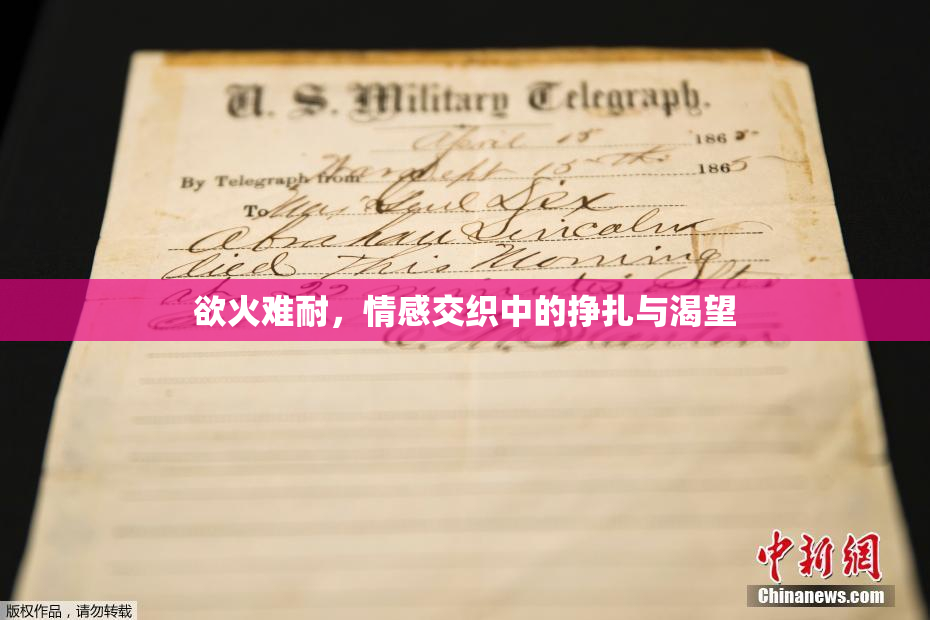 U. S. Military Telegraph.
April 15 1865
By Telegraph from War Dept 15th 1865
To Maj Genl Dix
Abraham Lincoln
died This Morning
at 22 minutes after
欲火难耐，情感交织中的挣扎与渴望
E. M. Stanton
中新网
Chinanews.com
版权作品，请勿转载